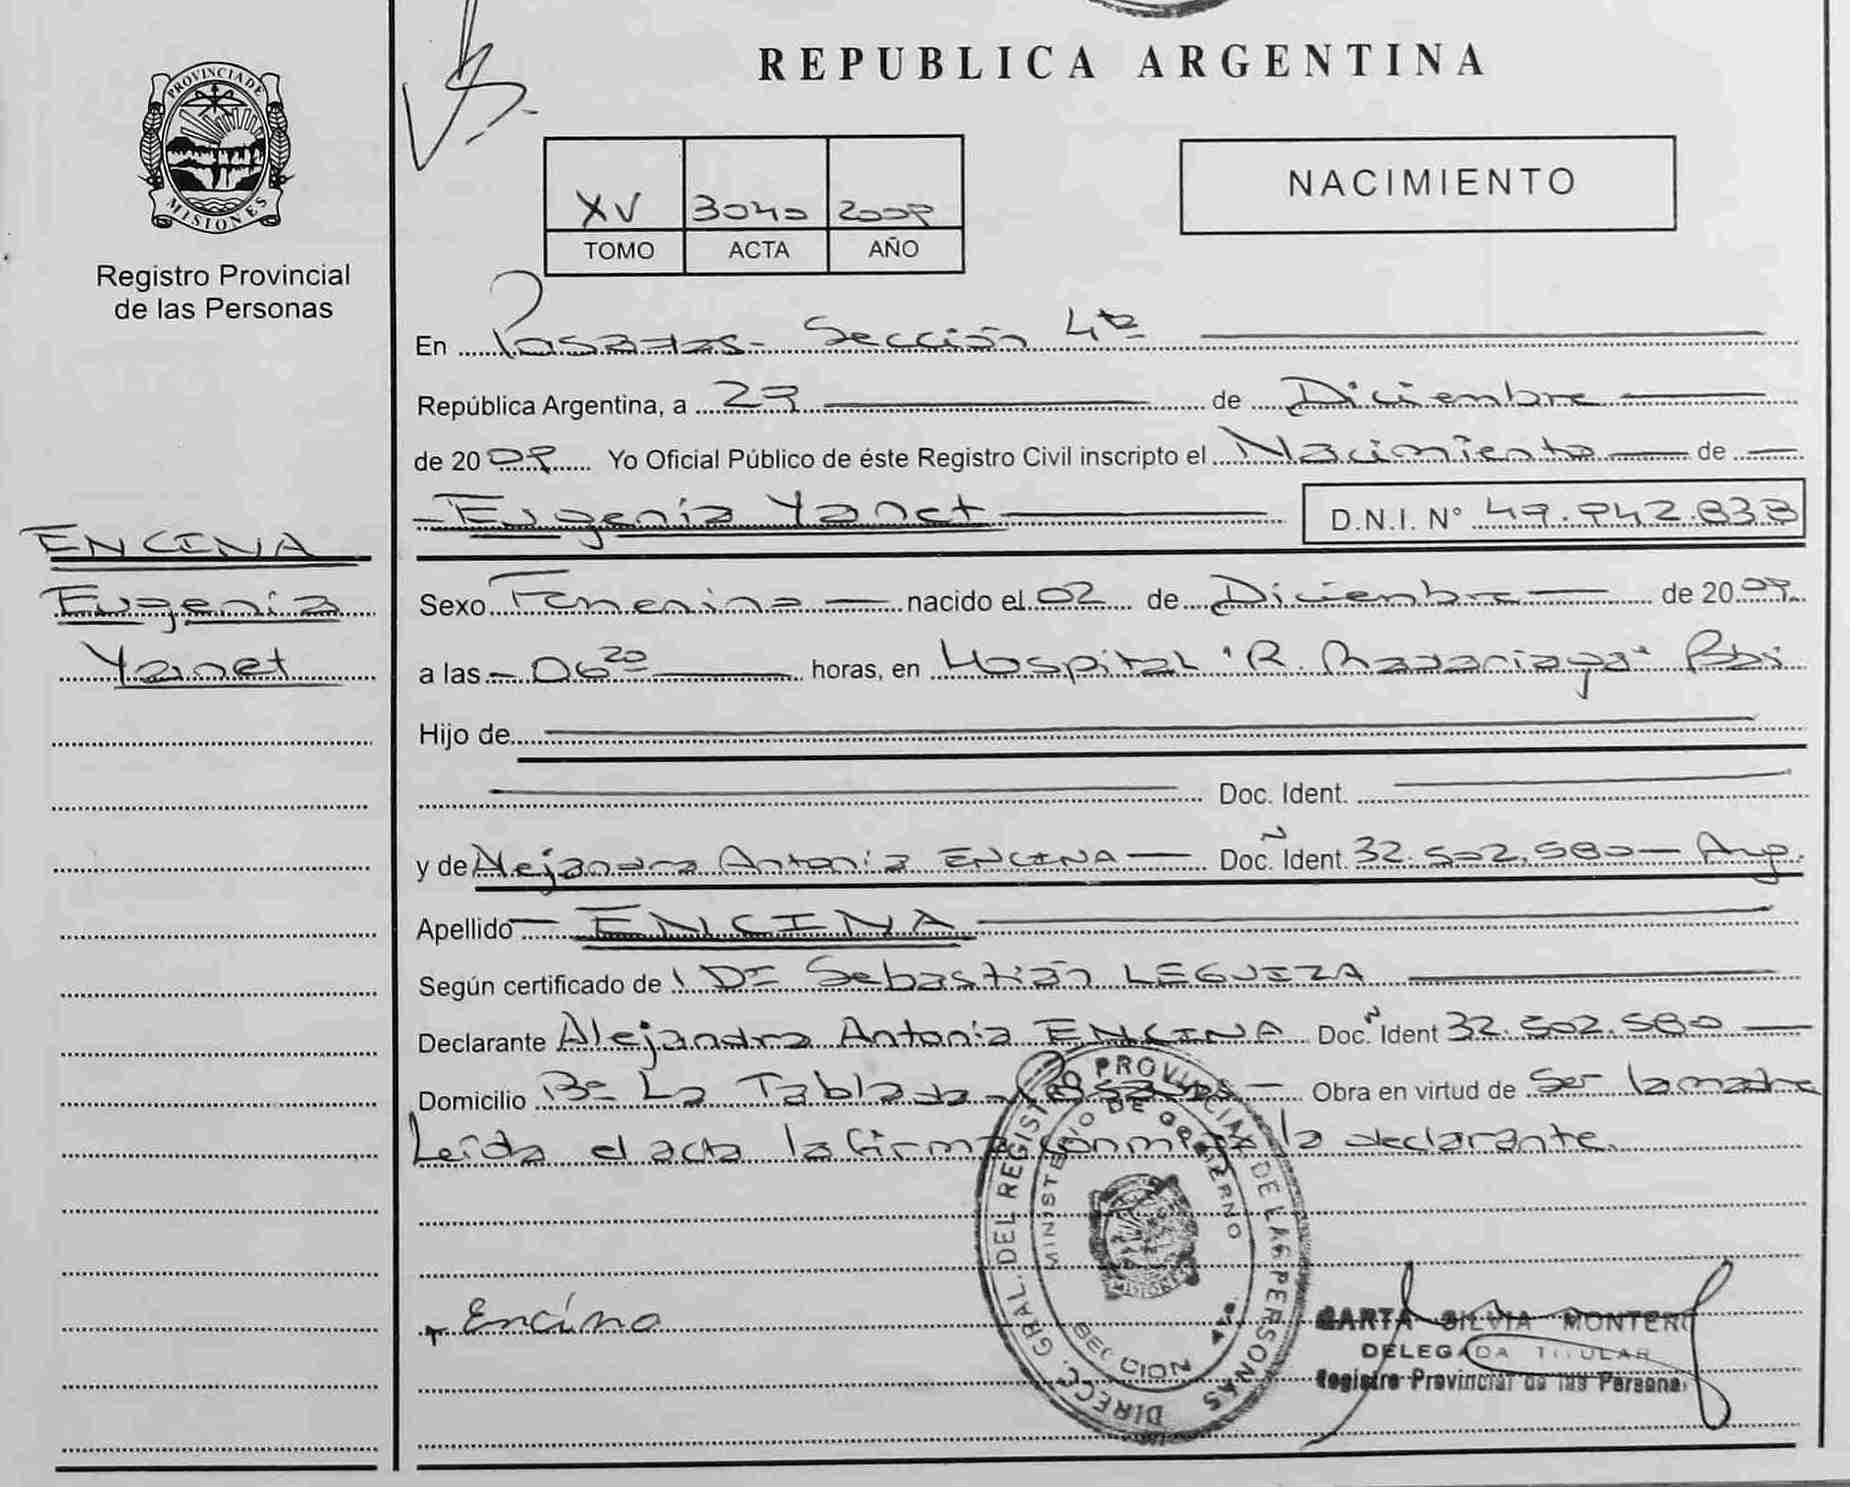 REPUBLICA ARGENTINA
PROVINCIA DE
MISIONES
Registro Provincial
de las Personas
XV 3040 2009
TOMO ACTA AÑO
NACIMIENTO
En Posadas - Sección 4ta
República Argentina, a 29 de Diciembre
de 2009 Yo Oficial Público de éste Registro Civil inscripto el Nacimiento de
Eugenia Yanet D.N.I. N° 49.942.833
ENCINA
Eugenia
Yanet
Sexo Femenino nacido el 02 de Diciembre de 2009
a las 06 20 horas, en Hospital "R. Madariaga"
Hijo de
Doc. Ident.
y de Alejandra Antonia ENCINA Doc. Ident. 32.502.580 - Arg.
Apellido ENCINA
Según certificado de Sebastián LEGUIZA
Declarante Alejandra Antonia ENCINA Doc. Ident 32.502.580
Domicilio Bº La Tablada - Posadas - Obra en virtud de Ser la madre
Leída el acta la firma conmigo la declarante.
DIRECC. GRAL. DEL REGISTRO PROVINCIAL DE LAS PERSONAS
MINISTERIO DE GOBIERNO
MISIONES
Encina
SILVIA MONTERO
DELEGADA TITULAR
Registro Provincial de las Personas